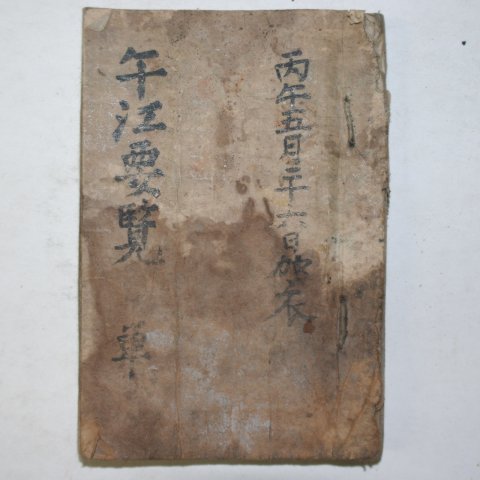 丙午五月二十六日改衣
午江要覧
單